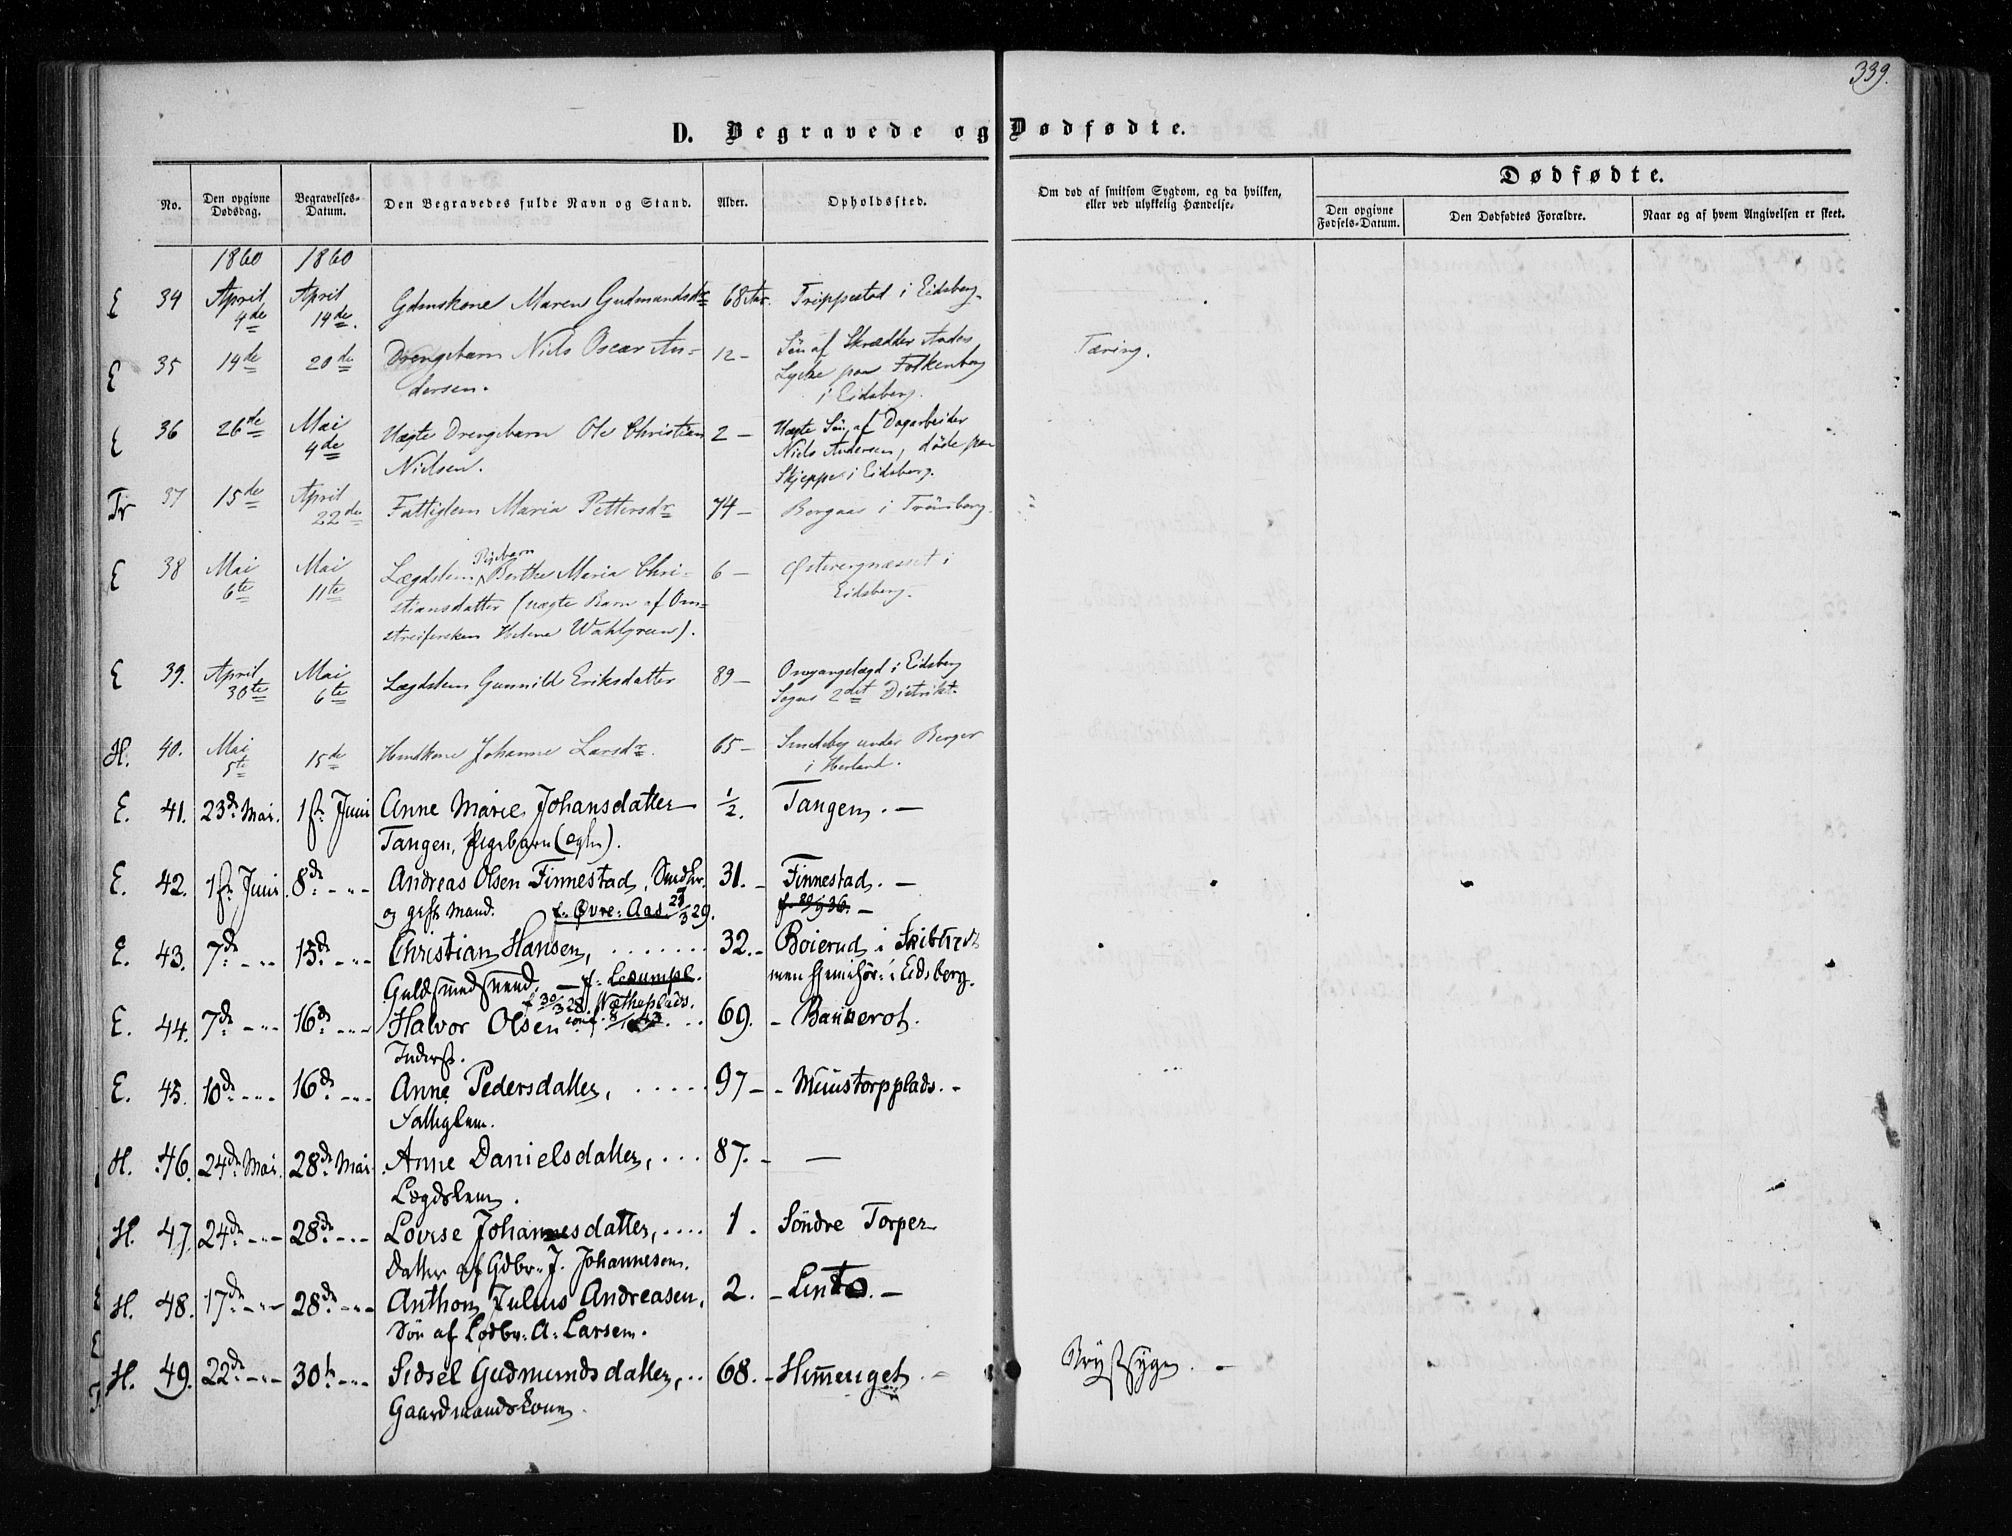 339.
D. Begravede og Dødfødte.
No.
Den opgivne Dødsdag.
Begravelses-Datum.
Den Begravedes fulde Navn og Stand.
Alder.
Opholdssted.
Om død af smitsom Sygdom, og da hvilken,
eller ved ulykkelig Hændelse.
Dødfødte.
Den opgivne Fødsels-Datum.
Den Dødfødtes Forældre.
Naar og af hvem Angivelsen er skeet.
1860 1860
E 34 April 4de April 14de. Gdmskone Maren Gudmandsdr 68 Aar. Trippestad i Eidsberg.
E 35 14de 20de Drengebarn Niels Oscar An- 12 - Søn af Skrædder Anders Tæring.
dersen. Lycke paa Folkenborg
i Eidsberg.
E 36 26de Mai 4de Uægte Drengebarn Ole Christian 2 - Uægte Søn af Dagarbeider
Nielsen. Niels Andersen, døde paa
Skjeppe i Eidsberg.
Tr 37 15de April 22de Fattiglem Maria Pettersdr 74 - Bergaas i Trömborg.
E 38 Mai 6te Mai 11te Lægdslem Pigebarn Berthe Maria Chri- 6 - Østeregnæsset i
stiansdatter (uægte Barn af Om- Eidsberg.
streifersken Helene Wahlgreen).
E 39. April 30te Mai 6te Lægdslem Gunnild Eriksdatter 89 - Omgangslægd i Eidsberg
Sogns 2det Distrikt.
H. 40. Mai 5te 15de Huuskone Johanne Larsdr. 65 - Smedsby under Berger
i Herland.
E. 41. 23d Mai. 1st Juni Anne Marie Johansdatter ½. Tangen. -
Tangen, Pigebarn (ægte).
E. 42. 1st Juni 8d - " - Andreas Olsen Finnestad, Smedsv. 31. - Finnestad. -
og gift Mand. f. Øvre-Aas 23/3 29.
E. 43. 7d - " - 15d - " - Christian Hansen, 32. - Boierud i Skibtvedt
Guldsmedsvend. - men hjemhør. i Eidsberg.
f 30/3 28.
E. 44. 7d - " - 16d - " - Halvor Olsen 69. - Bankerot.
Inderst.
E. 45. 10d - " - 16d - " - Anne Pedersdatter, 97 - - Muustorpplads. -
Fattiglem.
H. 46. 24d Mai. 28d Mai. Anne Danielsdatter, 87. - -
Lægdslem.
H. 47. 24d - " - 28d - " - Lovise Johannesdatter, 1. Söndre Torper
Datter af Gdbr. J. Johannesen.
H. 48. 17d - " - 28d - " - Anthon Julius Andreasen, 2. - Lento. -
Sön af Lodbr. A. Larsen.
H. 49. 22d - " - 30t - " - Sidsel Gudmundsdatter, 68. - Himenget Brystsyge. -
Gaardmandskone.